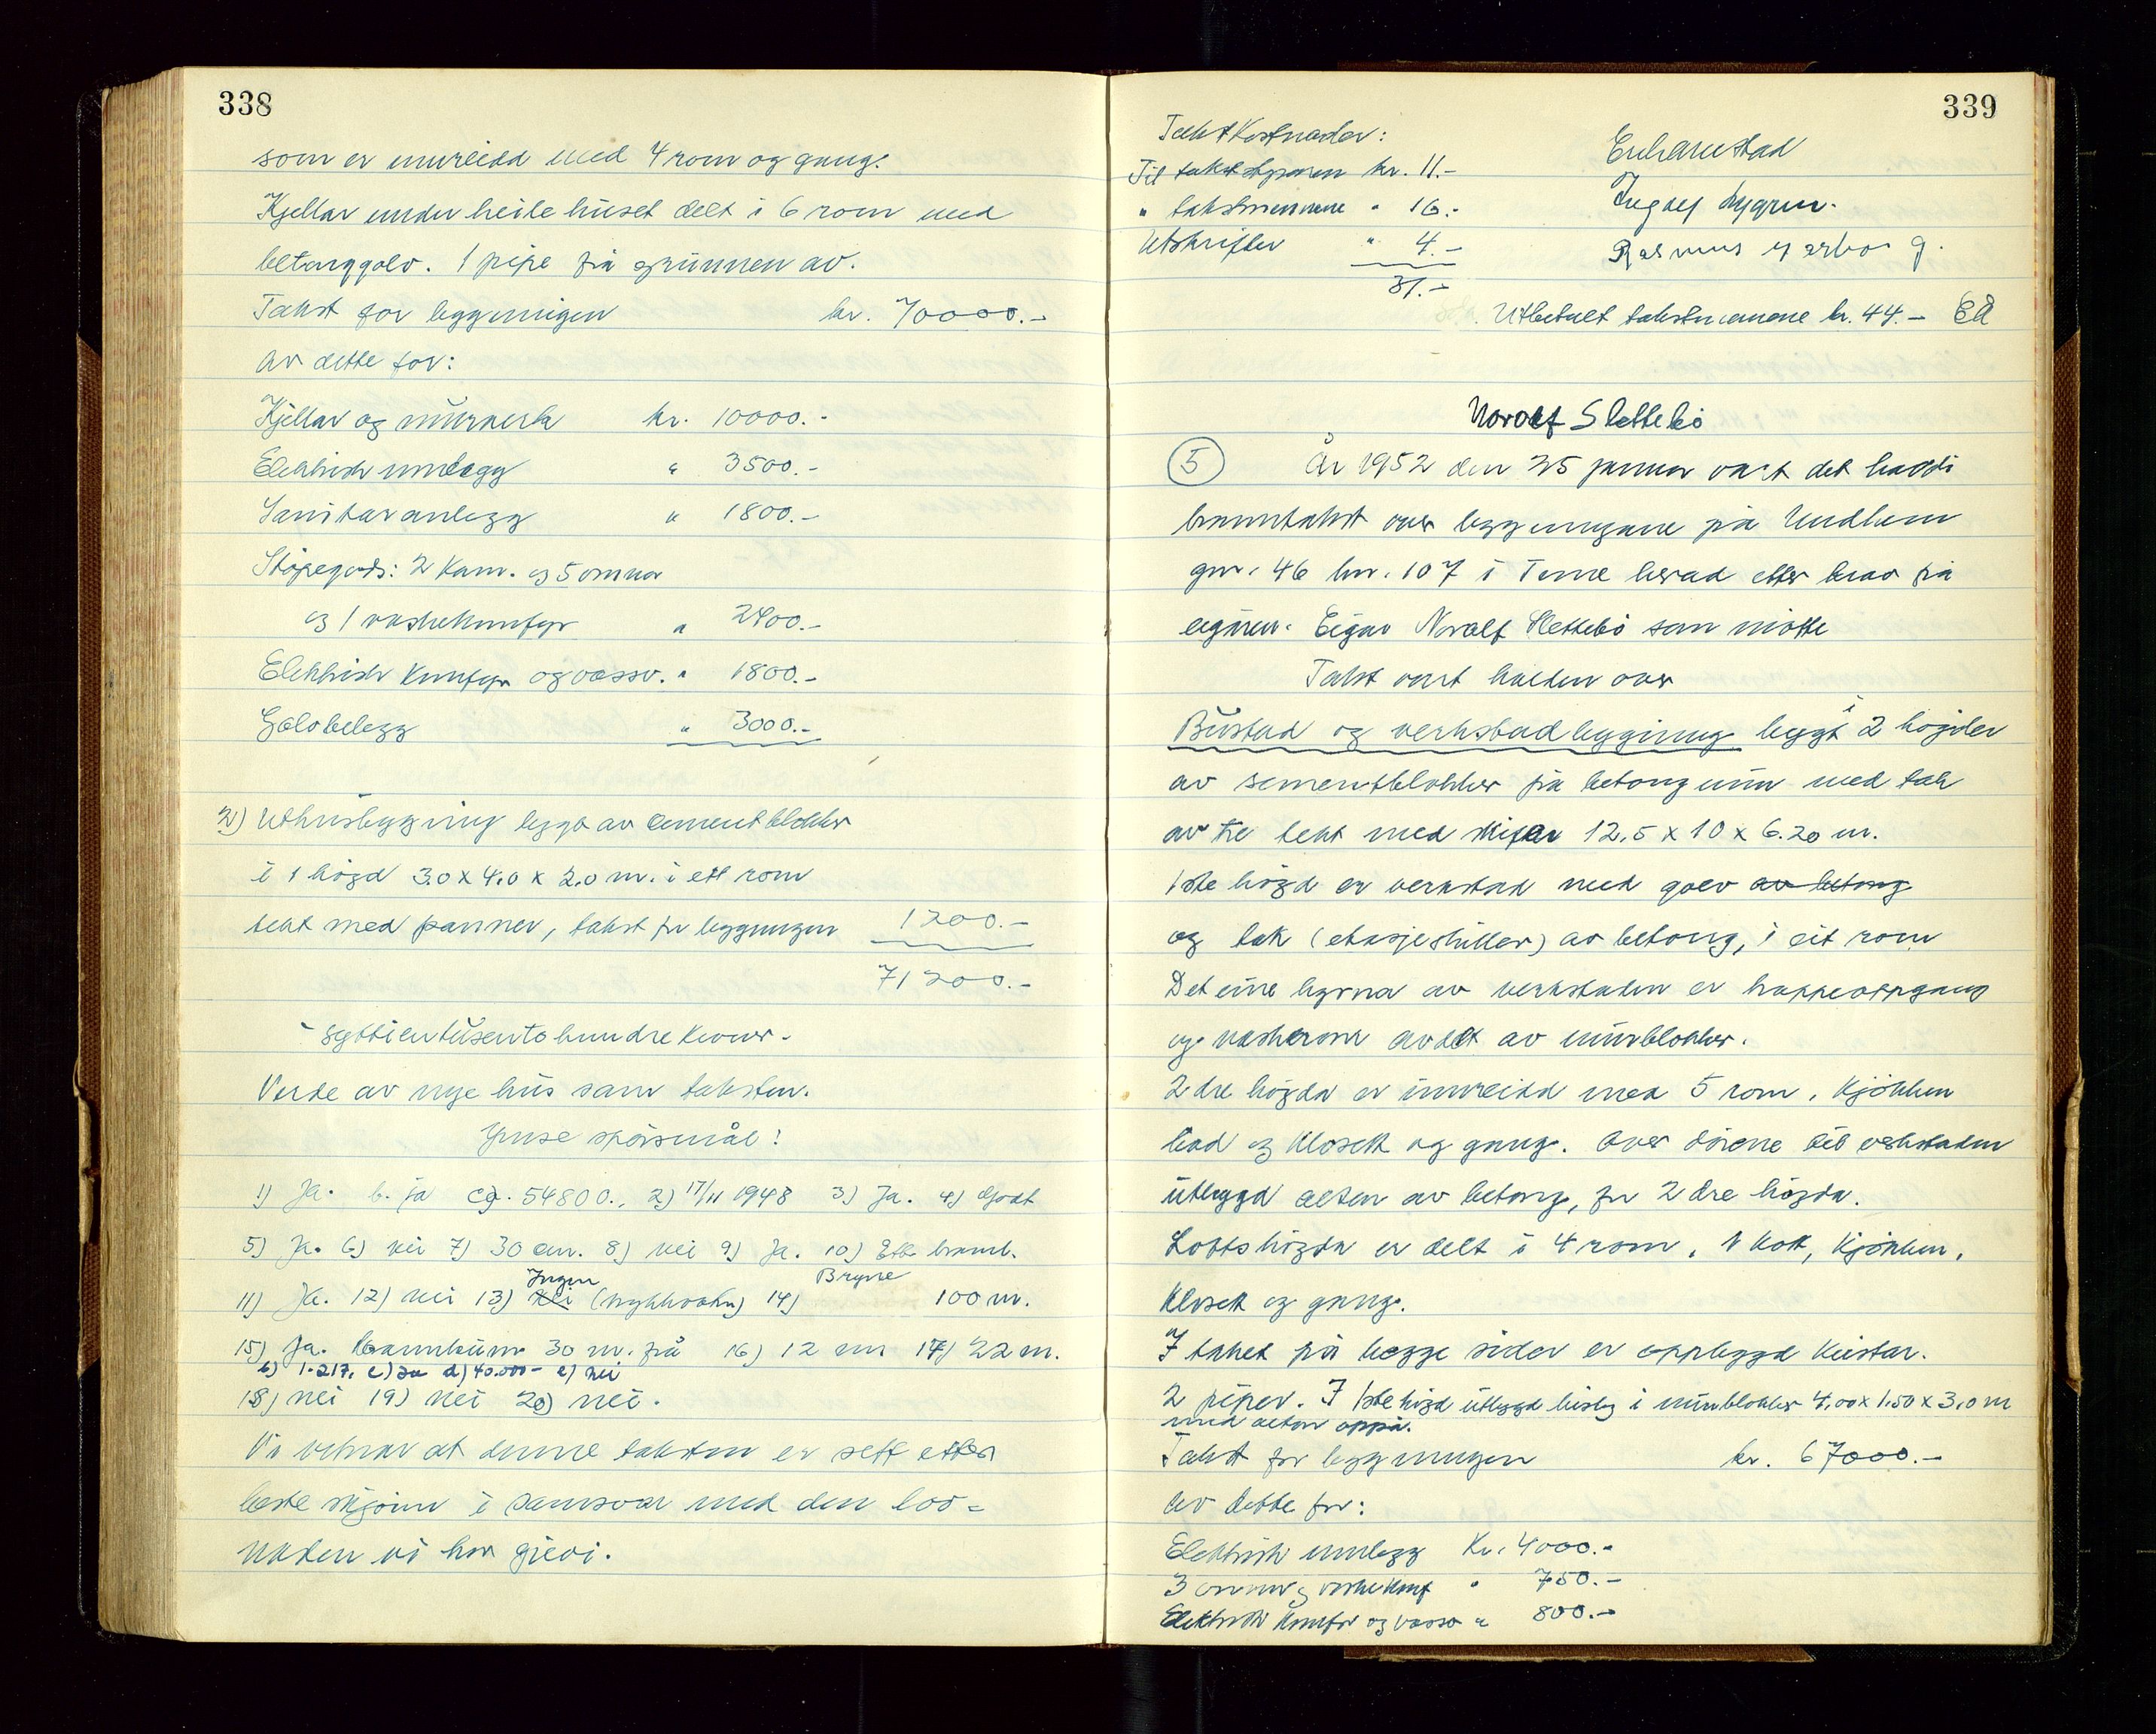 338
som er innreidd med 4 rom og gang.
Kjellar under heile huset delt i 6 rom med
betonggolv. 1 pipe frå grunnen av.
Takst for byggningen kr. 70000.-
Av dette for:
Kjellar og murverk kr. 10000.-
Elektrisk innlegg " 3500.-
Sanitæranlegg " 1800.-
Støpegods: 2 kam. og 5 omnar
og 1 vaskekomfyr " 2400.-
Elektrisk komfyr og vassv. " 1800.-
Golvbelegg " 3000.-
2) Uthusbygging bygt av cementblokker
i 1 høgd 3.0 x 4.0 x 2.0 m. i ett rom
tekt med panner, takst for byggningen 1200.-
71200.-
- syttientusentohundre kroner -
Verde av nye hus som taksten.
Ymse spørsmål:
1) Ja. b. ja c). 54800., 2) 17/11 1948 3) Ja. 4) Godt
5) Ja. 6) nei 7) 30 cm. 8) nei 9) Ja. 10) Ett brannb.
Ingen Bryne
11) Ja. 12) nei 13) nei (trykkvatn) 14) 100 m.
15) Ja. Brannkum 30 m. frå 16) 12 m 17) 22 m.
b) 1.217. c) Ja d) 40.000- e) nei
18) nei 19) nei 20) nei.
Vi vitnar at denne taksten er sett etter
beste skjønn i samsvar med den lov-
naden vi har gjevi.
339
Takstkostnader:
Til takstskjønen kr. 11.-
" takstmennene " 16.-
Utskrifter " 4.-
31.-
Rasmus
Utbetalt takstmennene kr. 44.- EÅ
Norolf Slettebø
5 År 1952 den 25 januar vart det haldi
branntakst over byggningane på Undheim
gnr. 46 bnr. 107 i Time herad etter krav frå
eigaren. Eigar Norolf Slettebø som møtte
Takst vart halden over
Bustad og verkstadbygging bygt i 2 høgder
av sementblokker på betongmur med tak
av tre tekt med skifer 12.5 x 10 x 6.20 m.
1ste høgd er verkstad med golv av betong
og tak (etasjeskiller) av betong, i eit rom
Det eine hyrna av verkstaden er trappeoppgang
og vaskerom avdelt av murblokker.
2dre høgda er innreidd med 5 rom, kjøkken
bad og klosett og gang. Over dørene til verkstaden
utbygd altan av betong, for 2dre høgda.
Loftshøgda er delt i 4 rom, 1 kott, kjøkken,
klosett og gang.
I taket på begge sider er oppbygd kvistar.
2 piper. I 1ste høgd utbygd bislag i murblokker 4.00 x 1.50 x 3.0 m
med altan oppå.
Takst for byggningen kr. 67000.-
Av dette for:
Elektrisk innlegg Kr. 4000.-
3 omnar og vaskekomf " 750.-
Elektrisk komfyr og vassv " 800.-